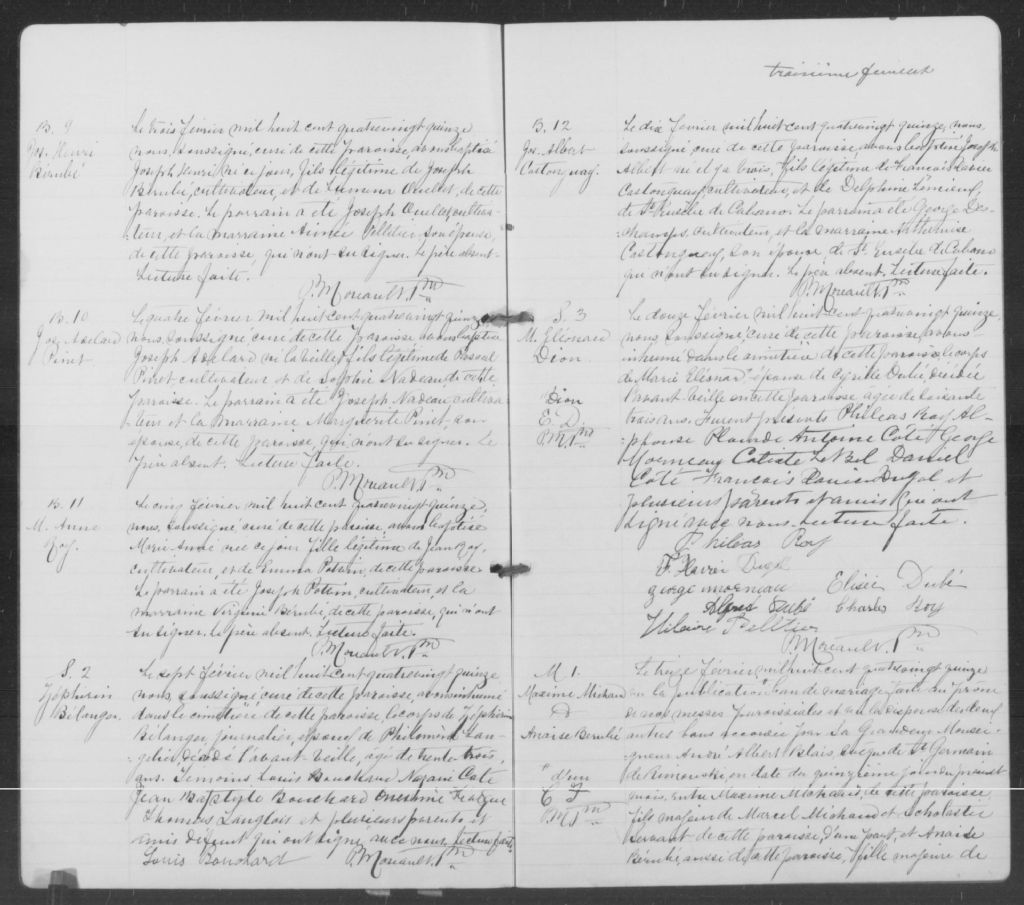 B. 9
Jos. Henri
Bérubé
Le trois février mil huit cent quatrevingt quinze
nous, soussigné, curé de cette paroisse, avons baptisé
Joseph Henri, né ce jour, fils légitime de Joseph
Bérubé, cultivateur, et de Lumina Ouellet, de cette
paroisse. Le parrain a été Joseph Ouellet, cultiva-
teur, et la marraine Aimée Pelletier son épouse,
de cette paroisse, qui n'ont su signer. Le père absent.
Lecture faite.
P. Morault, Ptre
B. 10
Jos. Adelard
Pinet
Le quatre février mil huit cent quatrevingt quinze
nous, soussigné, curé de cette paroisse avons baptisé
Joseph Adelard né la veille, fils légitime de Pascal
Pinet cultivateur et de Sophie Nadeau, de cette
paroisse. Le parrain a été Joseph Nadeau cultiva-
teur et la marraine Marguerite Pinet son
épouse, de cette paroisse, qui n'ont su signer. Le
père absent. Lecture faite.
P. Morault, Ptre
B. 11
M. Anna
Roy.
Le cinq février mil huit cent quatrevingt quinze,
nous, soussigné curé de cette paroisse, avons baptisé
Marie-Anna née ce jour fille légitime de Jean Roy,
cultivateur, et de Emma Potvin, de cette paroisse.
Le parrain a été Joseph Potvin, cultivateur, et la
marraine Virginie Bérubé, de cette paroisse, qui n'ont
su signer. Le père absent. Lecture faite.
P. Morault, Ptre
S. 2
Zéphirin
Bélanger
Le sept février mil huit cent quatrevingt quinze
nous, soussigné curé de cette paroisse, avons inhumé
dans le cimetière de cette paroisse, le corps de Zéphirin
Bélanger, journalier, époux de Philomène Lan-
gelier, décédé l'avant-veille, âgé de trente trois
ans. Témoins Louis Bouchard Coté
Jean Baptiste Bouchard Onesime
Thomas Langlois et plusieurs parents et
amis qui ont signé avec nous. Lecture faite.
Louis Bouchard P. Morault, Ptre
troisième feuillet
B. 12
Jos. Albert
Castonguay.
Le dix février mil huit cent quatrevingt quinze, nous,
soussigné, curé de cette paroisse, avons baptisé Joseph
Albert né il y a trois, fils légitime de François Xavier
Castonguay, cultivateur, et de Delphine Lemieux,
de St Eusèbe de Cabano. Le parrain a été George Des-
champs, cultivateur, et la marraine
Castonguay, son épouse, de St. Eusèbe de Cabano
qui n'ont su signer. Le père absent. Lecture faite.
P. Morault, Ptre
S. 3
M. Eléonard
Dion
Dion
E. D.
P.M. Ptre
Le douze février mil huit cent quatrevingt quinze,
nous, soussigné, curé de cette paroisse, avons
inhumé dans le cimetière de cette paroisse, le corps
de Marie Eléonar épouse de Cyrille Dubé, décédée
l'avant-veille en cette paroisse agée de soixante
trois ans. Furent présents Philéas Roy Al-
phonse Plourde Antoine Coté George
Morneau Calixte LeBel Daniel
Coté Francois Xavier Dugal et
plusieurs parents et amis qui ont
signé avec nous. Lecture faite.
Philéas Roy
F. Xavier Dugal
george morneau Elisée Dubé
Alfred Dubé Charles Roy
Hilaire Pelletier
P. Morault, Ptre
M 1.
Maxime Michaud
&
Anaïse Bérubé
Le treize février, mil huit cent quatrevingt quinze
vu la publication d'un ban de mariage faite au prône
de nos messes paroissiales et vu la dispense de deux
autres bans accordée par Sa Grandeur Mousei-
gneur André Albert Blais, Evêque de St Germain
de Rimouski, en date du quinzième jour du présent
mois, entre Maxime Michaud, de cette paroisse,
fils majeur de Marcel Michaud et Scholastic
Servant de cette paroisse, d'une part, et Anaïse
Bérubé, aussi de cette paroisse, fille majeure de